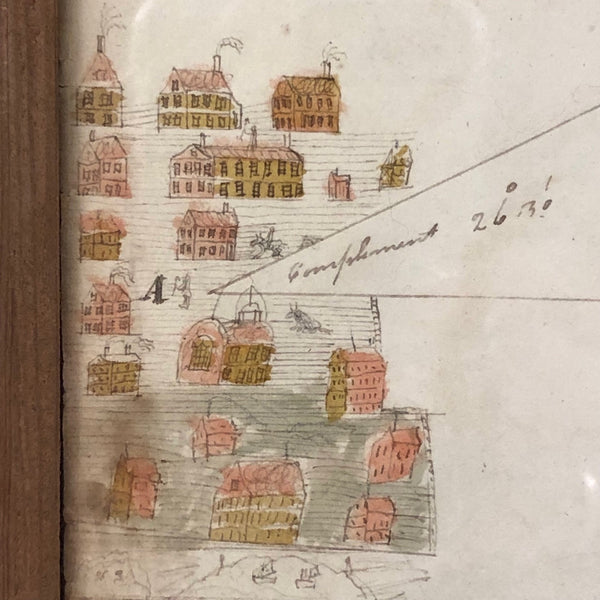 Complement 26° 3°'
A